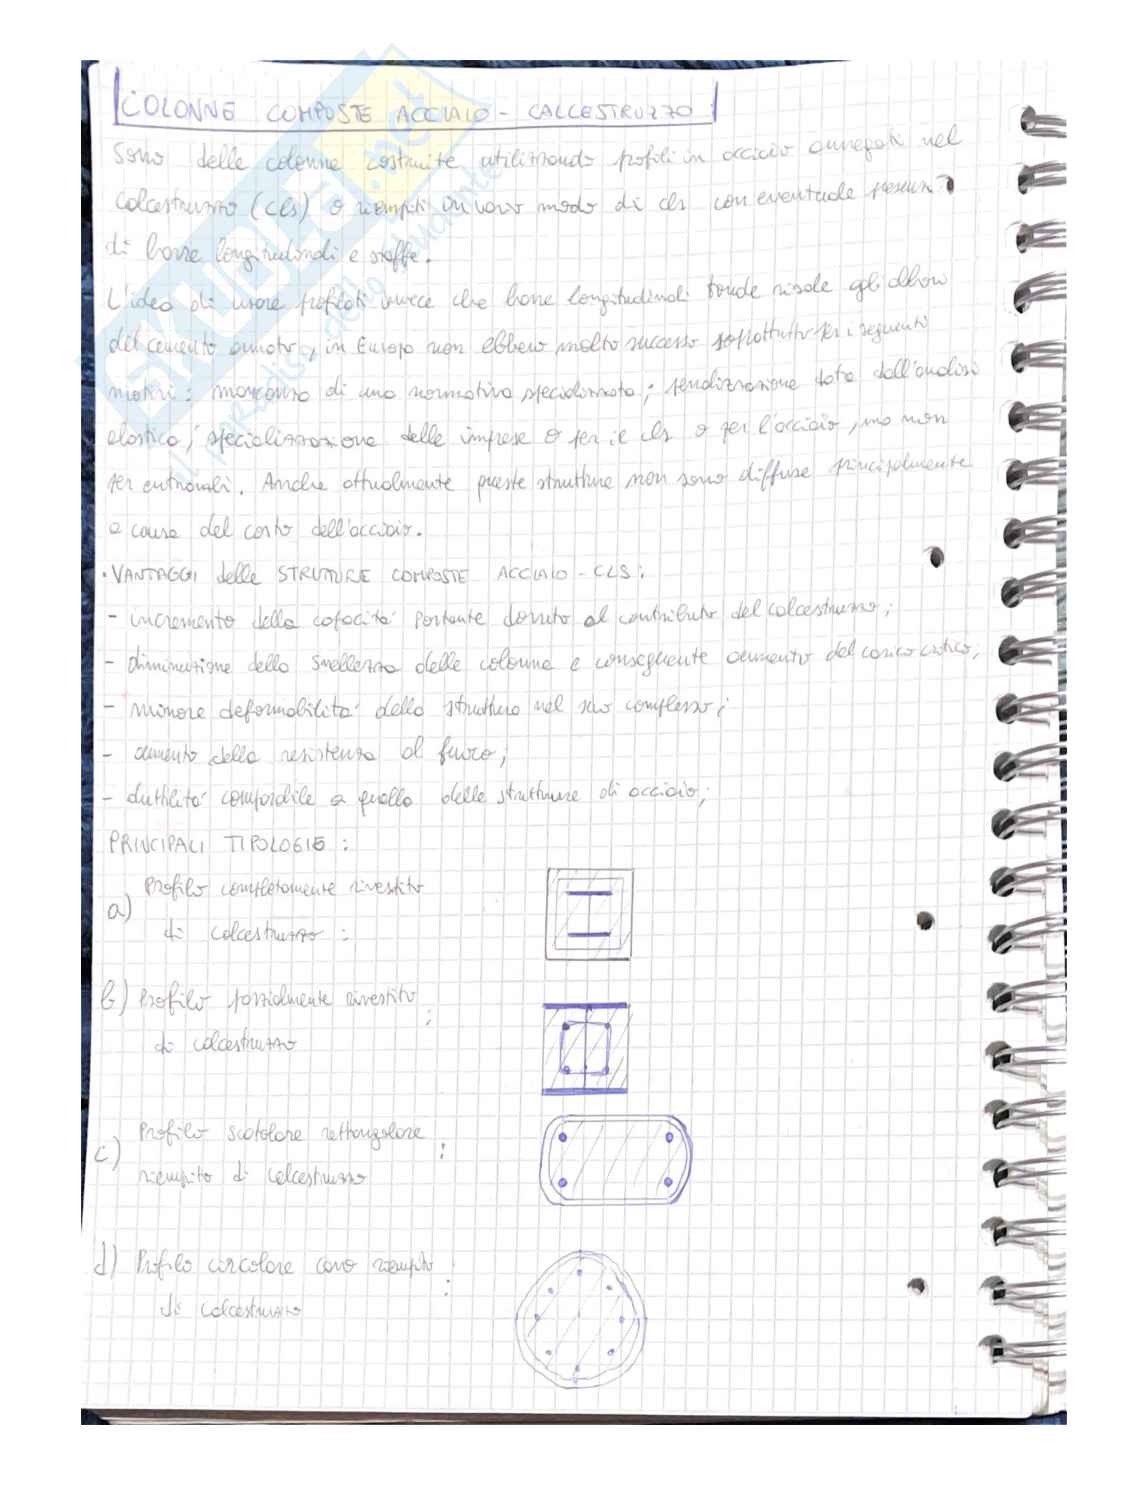 COLONNE COMPOSTE ACCIAIO - CALCESTRUZZO
Sono delle colonne costruite utilizzando profili in acciaio annegati nel
calcestruzzo (cls) o riempiti in vario modo di cls con eventuale presenza
di barre longitudinali e staffe.
L'idea di usare profilati invece che barre longitudinali tonde risale gli albori
del cemento armato, in Europa non ebbero molto successo soprattutto per i seguenti
motivi: mancanza di una normativa specializzata; penalizzazione data dall'analisi
elastica; specializzazione delle imprese o per il cls o per l'acciaio, ma non
per entrambi. Anche attualmente queste strutture non sono diffuse principalmente
a causa del costo dell'acciaio.
• VANTAGGI delle STRUTTURE COMPOSTE ACCIAIO - CLS:
- incremento della capacità portante dovuto al contributo del calcestruzzo;
- diminuzione della snellezza delle colonne e conseguente aumento del carico critico;
- minore deformabilità della struttura nel suo complesso;
- aumento della resistenza al fuoco;
- duttilità comparabile a quella delle strutture di acciaio;
PRINCIPALI TIPOLOGIE:
a) Profilo completamente rivestito
di calcestruzzo:
b) Profilo parzialmente rivestito
di calcestruzzo:
c) Profilo scatolare rettangolare
riempito di calcestruzzo:
d) Profilo circolare cavo riempito
di calcestruzzo:
SKUOLA.net
il paradiso dello studente